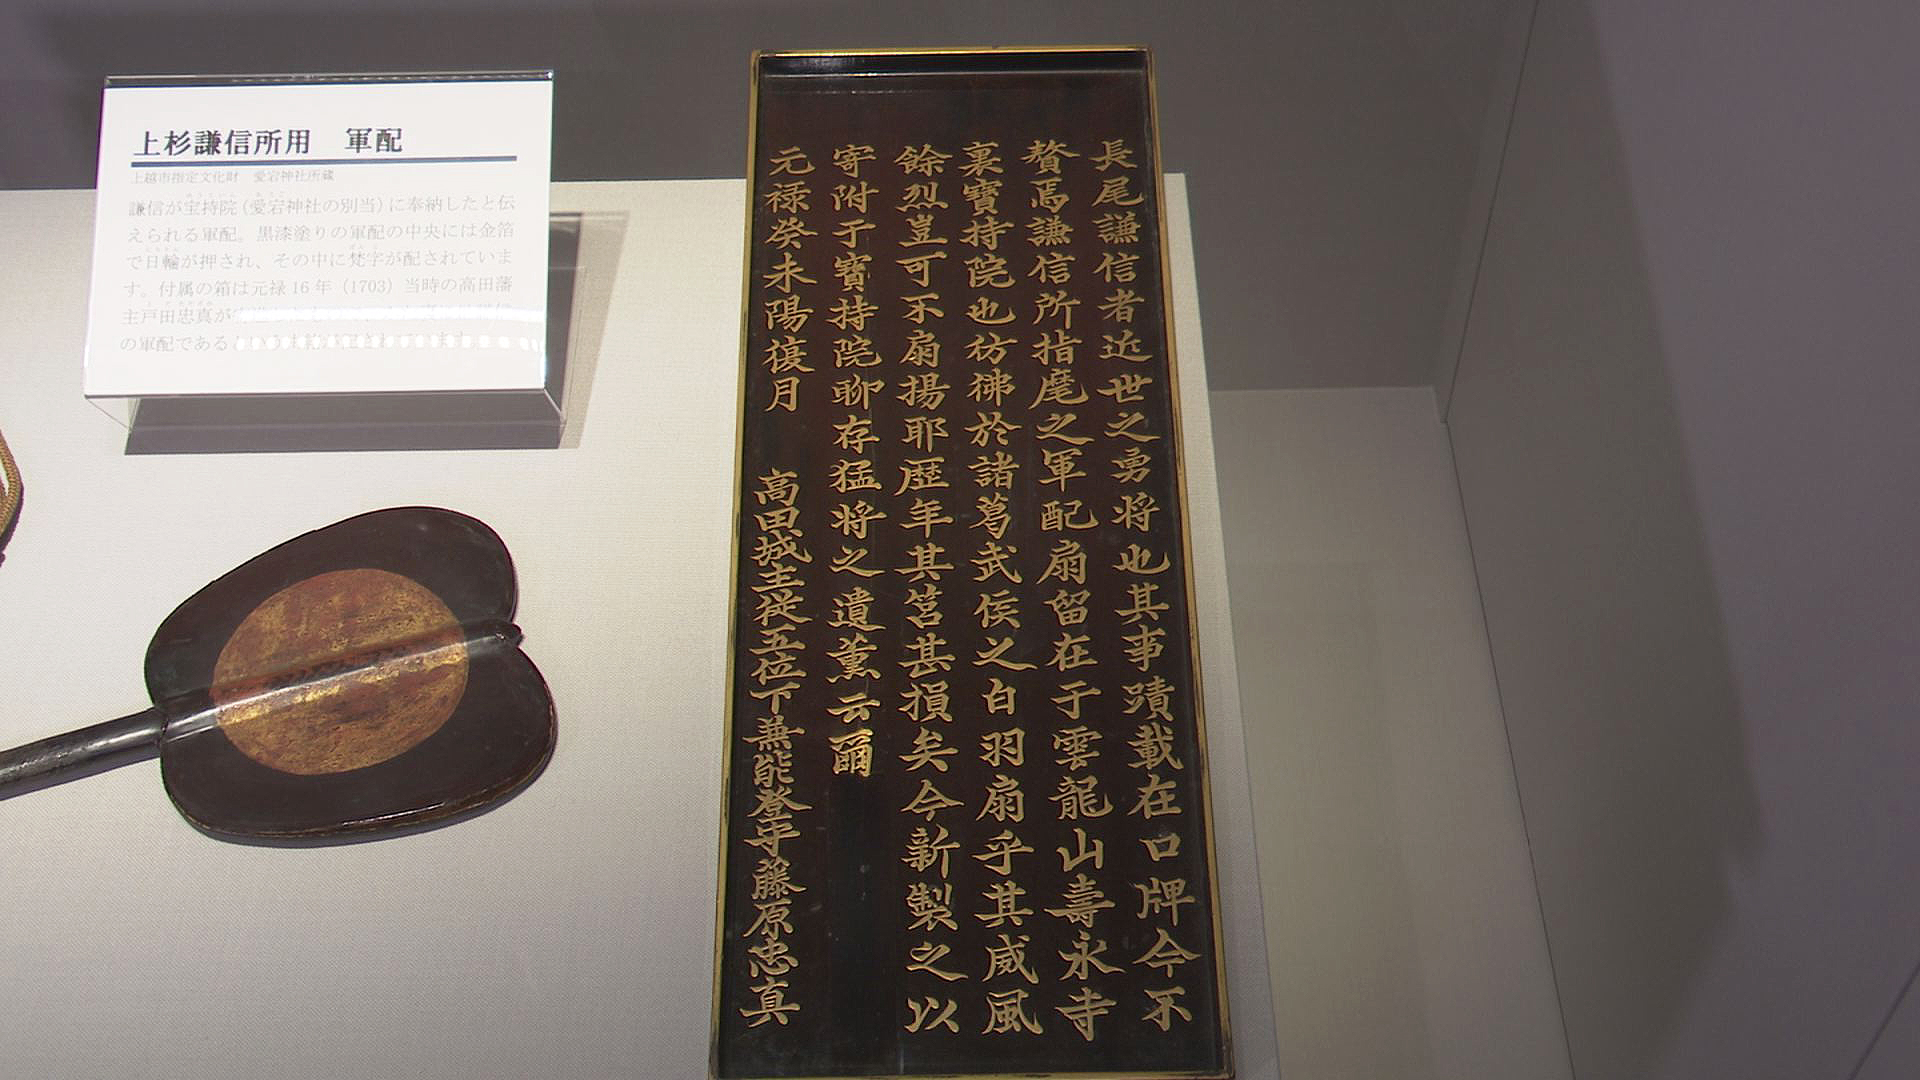 上杉謙信所用　軍配
上越市指定文化財　愛宕神社所蔵
謙信が宝持院（愛宕神社の別当）に奉納したと伝
えられる軍配。黒漆塗りの軍配の中央には金箔
で日輪が押され、その中に梵字が配されていま
す。付属の箱は元禄16年（1703）当時の高田藩
主戸田忠真が
の軍配である
長尾謙信者近世之勇将也其事蹟載在口牌今不
贅焉謙信所指麾之軍配扇留在于雲龍山壽永寺
裏寶持院也彷彿於諸葛武侯之白羽扇乎其威風
餘烈豈可不扇揚耶歴年其筥甚損矣今新製之以
寄附于寶持院聊存猛将之遺薫云爾
元禄癸未陽復月　高田城主従五位下兼能登守藤原忠真